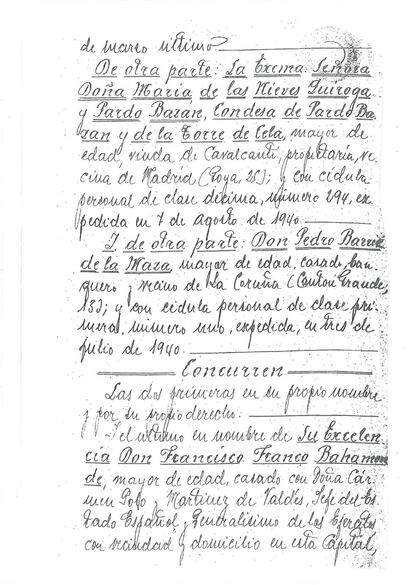 de marzo último
De otra parte: La Excma. Señora
Doña María de las Nieves Quiroga
y Pardo Bazán, Condesa de Pardo Ba-
zán y de la Torre de Cela, mayor de
edad, viuda de Cavalcanti, propietaria, ve-
cina de Madrid (Goya, 25); y con cédula
personal de clase décima, número 294, ex-
pedida en 7 de agosto de 1940.
Y de otra parte: Don Pedro Barrié
de la Maza, mayor de edad, casado, ban-
quero, vecino de La Coruña (Cantón Grande,
13); y con cédula personal de clase pri-
mera, número uno, expedida, en tres de
julio de 1940.
Concurren
Las dos primeras en su propio nombre
y por su propio derecho:
Y el último en nombre de Su Excelen-
cia Don Francisco Franco Bahamon-
de, mayor de edad, casado con Doña Cár-
men Polo y Martínez de Valdés, Jefe del Es-
tado Español, y Generalísimo de los Ejércitos
con vecindad y domicilio en esta Capital,